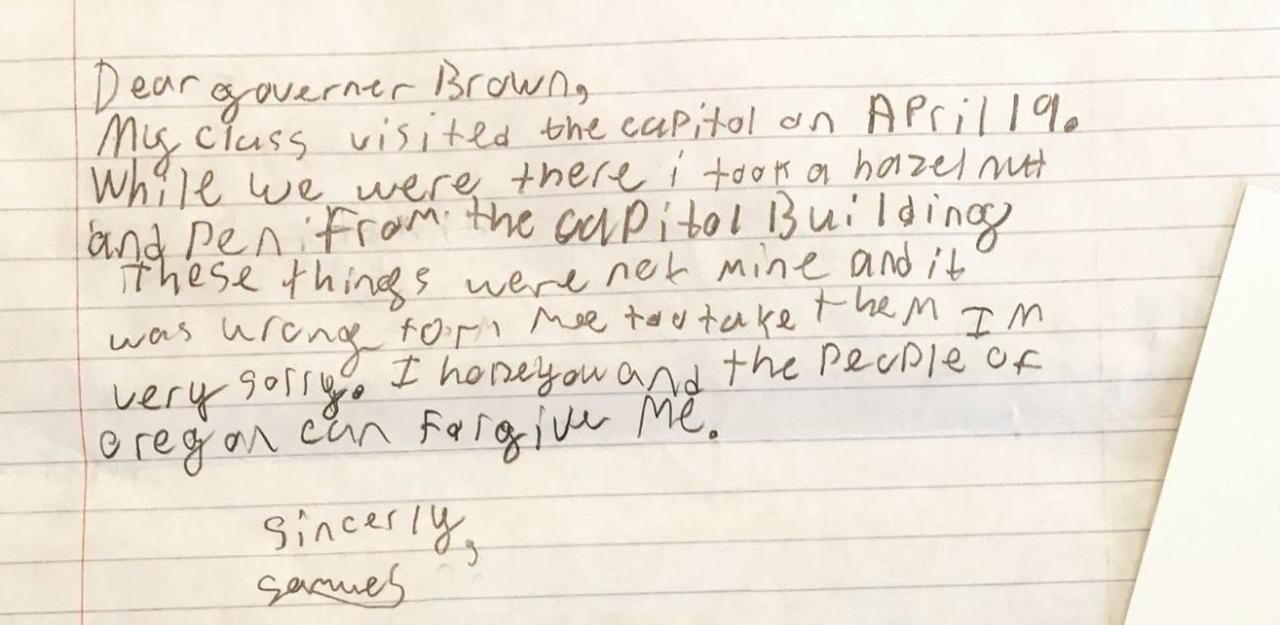 Dear governer Brown,
My class visited the capitol on April 19.
While we were there i took a hazel nut
and pen from the capitol Building
these things were not mine and it
was wrong for mee too take them Im
very sorry. I hope you and the people of
oregon can forgive Me.
Sincerly,